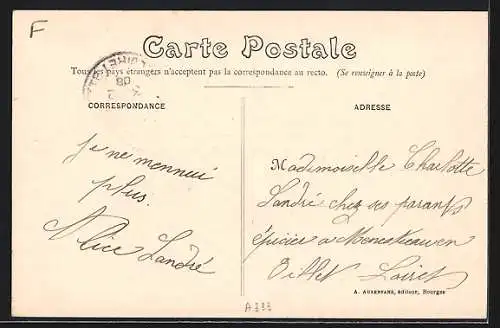 F
Carte Postale
Tous les pays étrangers n'acceptent pas la correspondance au recto. (Se renseigner à la poste)
CORRESPONDANCE
ADRESSE
Je ne mennui
plus.
Alice Landré
Mademoiselle Charlotte
Landré chez ses parants
épicier a
Loiret
A. AUXENFANS, éditeur, Bourges
A333